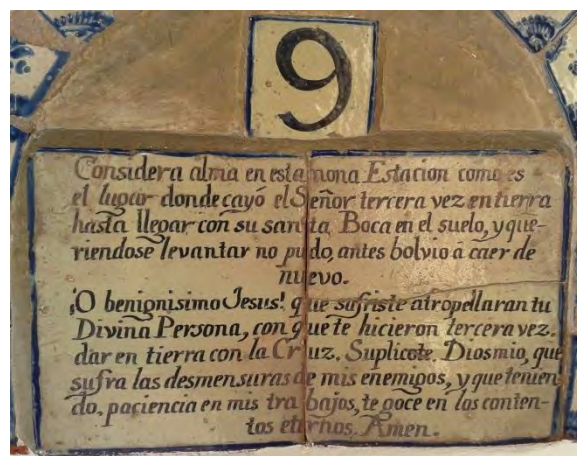 9
Considera alma en esta nona Estacion como es
el lugar donde cayó el Señor tercera vez en tierra
hasta llegar con su santa Boca en el suelo, y que-
riendose levantar no pudo, antes bolvio à caer de
nuevo.
¡O benignisimo Jesus! que sufriste atropellaran tu
Divina Persona, con que te hicieron tercera vez.
dar en tierra con la Cruz. Suplicote, Dios mio, que
sufra las desmensuras de mis enemigos, y que tenien
do. paciencia en mis trabajos, te goce en los conten-
tos eternos. Amen.